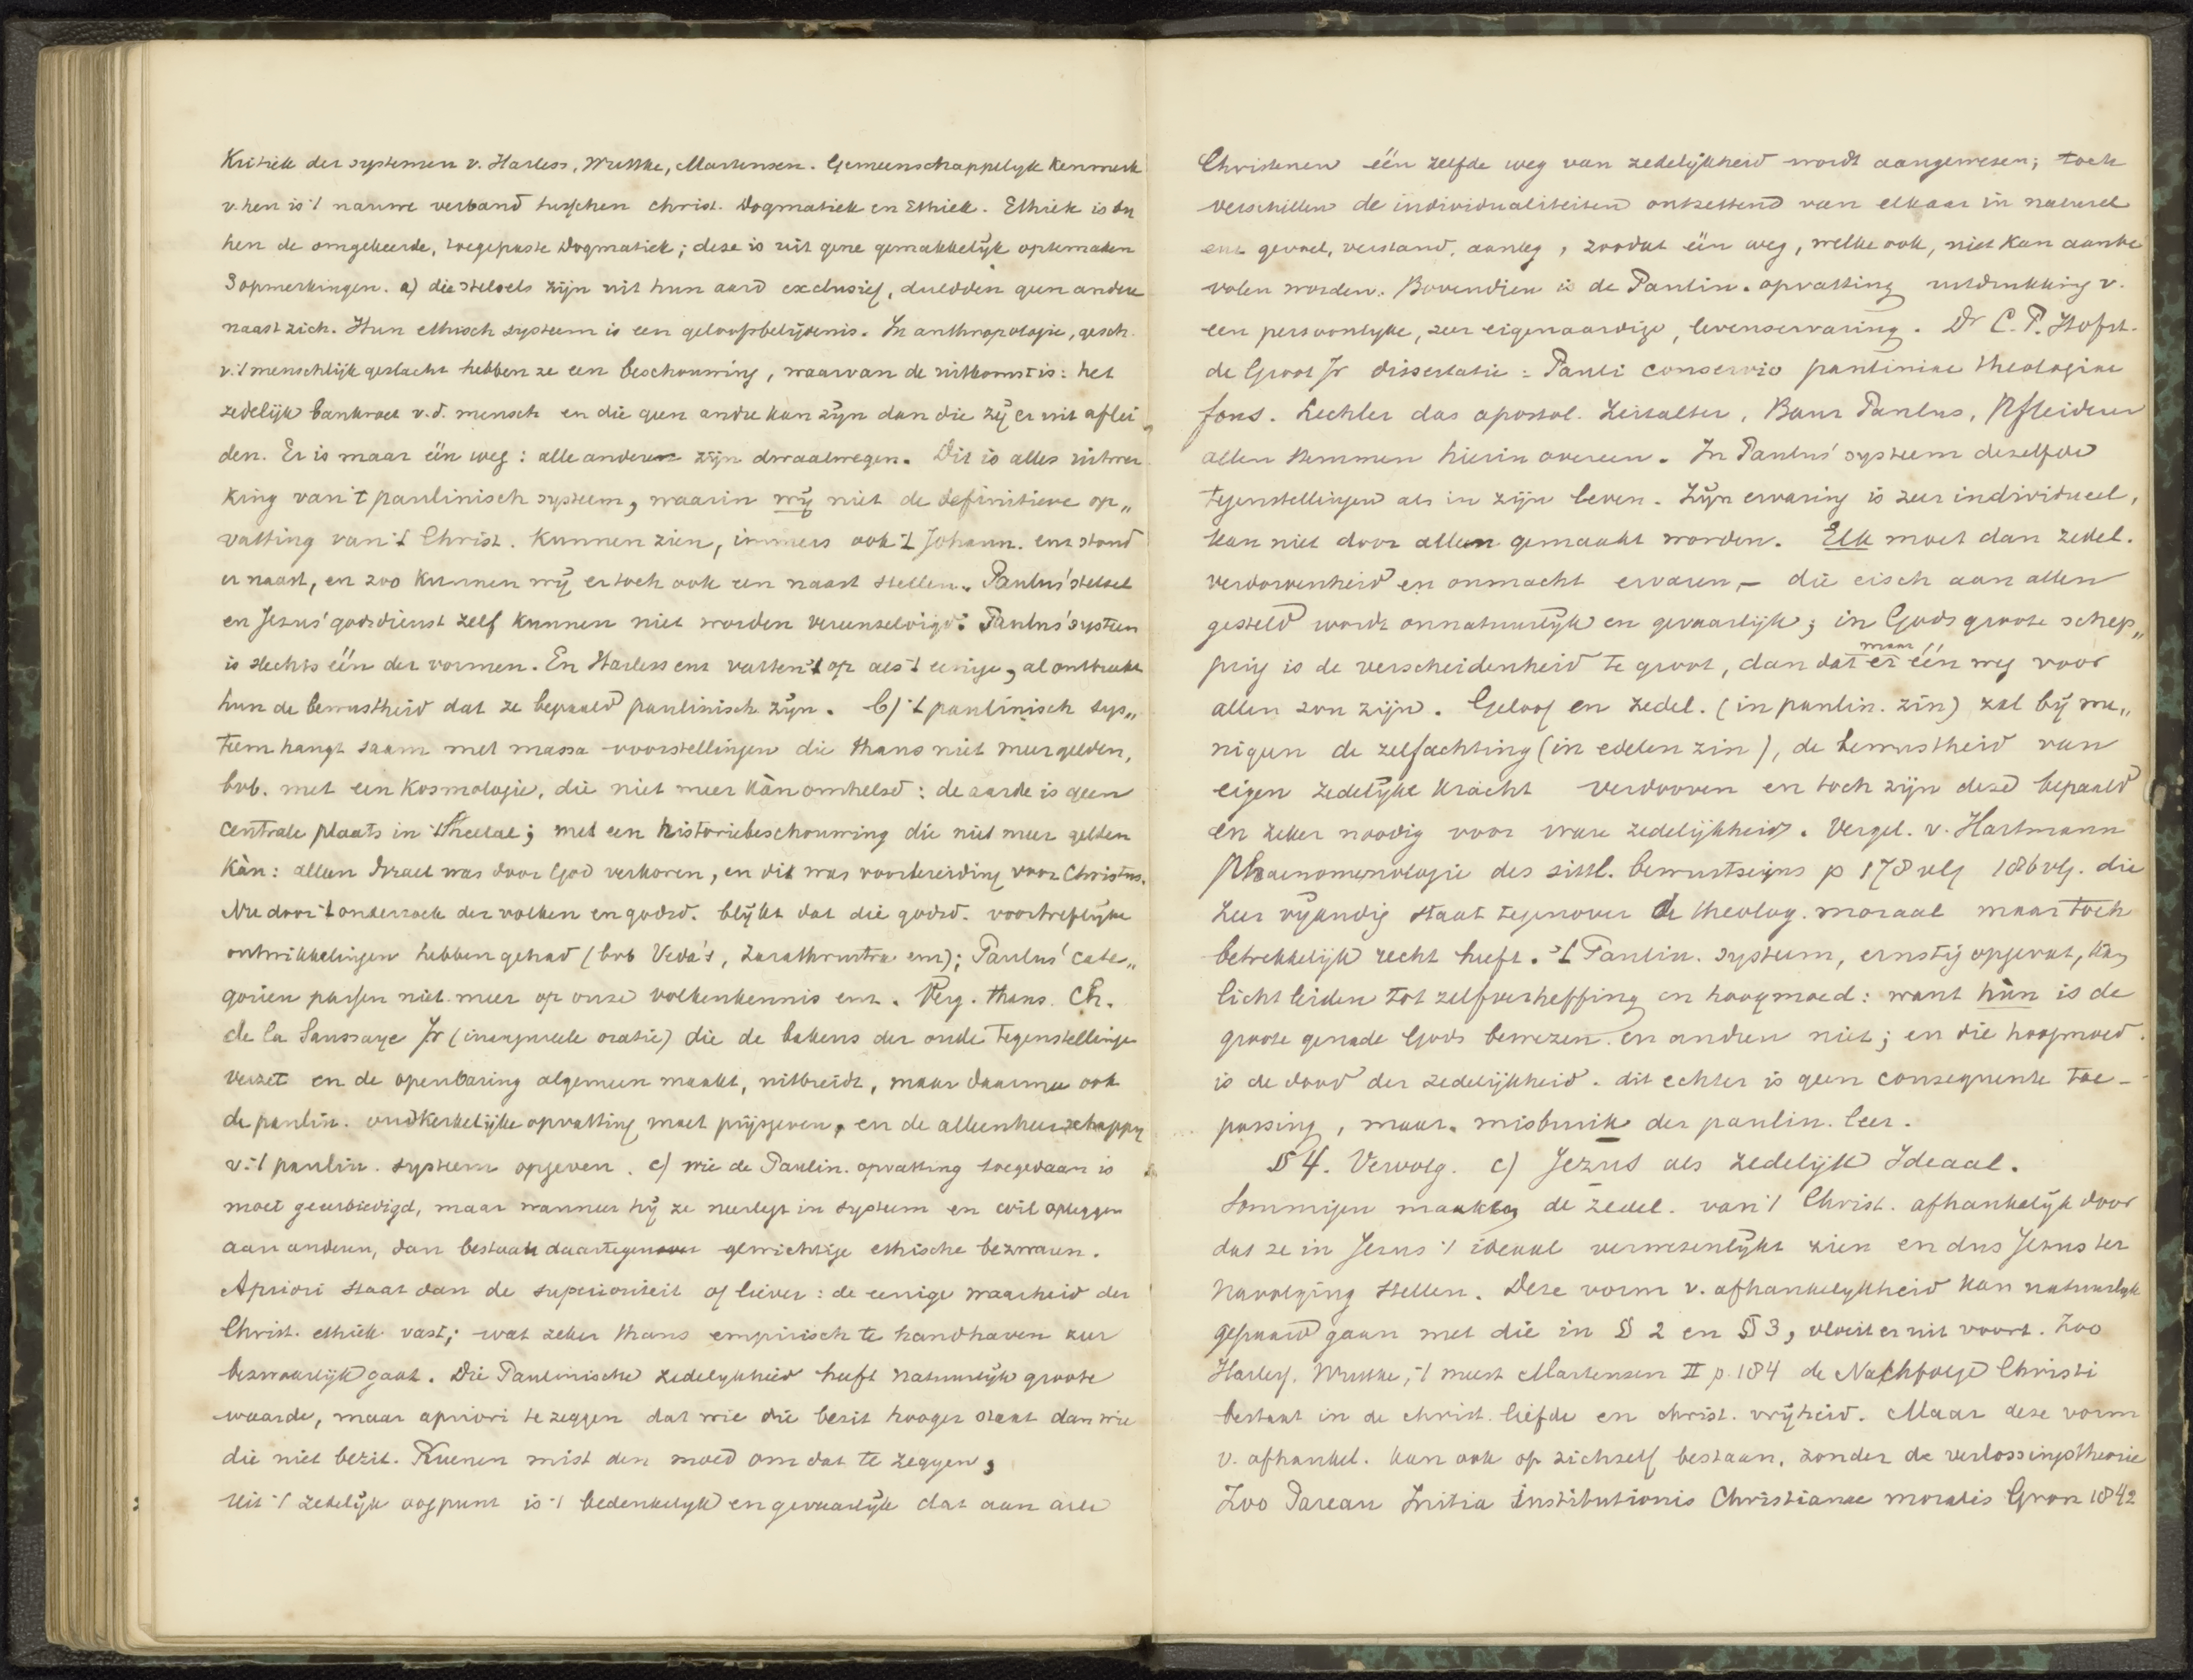 Kritiek der systemen v. Harless, Wuttke, Martensen. Gemeenschappelyk kenmerk
v. hen is 't nauwe verband tusschen christ. Dogmatiek en Ethiek. Ethiek is by
hen de omgekeerde, toegepaste Dogmatiek; deze is uit gene gemakkelijk optemaken
3 opmerkingen. a) die stelsels zijn uit hun aard exclusief, dulden geen andere
naast zich. Hun ethisch systeem is een geloofsbelijdenis. In anthropologie, gesch.
v. 't menschlijk geslacht hebben ze een beschouwing, waarvan de uitkomst is: het
zedelijk bankroet v. d. mensch en die geen andre kan zijn dan die zij er uit aflei
den. Er is maar één weg: alle anderen zijn dwaalwegen. Dit is alles uitwer
king van 't paulinisch systeem, waarin wij niet de definitieve op„
vatting van 't Christ. kunnen zien, immers ook 't Johann. enz stond
er naast, en zoo kunnen wij er toch ook een naast stellen. Paulus' stelsel
en Jezus' godsdienst zelf kunnen niet worden vereenzelvigd: Paulus' systeem
is slechts één der vormen. En Harless enz vatten 't op als 't eenige, al ontbreekt
hun de bewustheid dat ze bepaald paulinisch zijn. b) 't paulinisch sys„
teem hangt saam met massa voorstellingen die thans niet meer gelden,
bvb. met een kosmologie, die niet meer kàn omhelsd: de aarde is geen
centrale plaats in 't heelal; met een historiebeschouwing die niet meer gelden
kàn: alleen Israel was door God verkoren, en dit was voorbereiding voor Christus.
Nu door 't onderzoek der volken en godsd. blijkt dat die godsd. voortreflijke
ontwikkelingen hebben gehad (bvb Veda's, Zarathrustra enz); Paulus' cate„
gorien passen niet meer op onze volkenkennis enz. Verg. thans Ch.
de la Saussaye Jr (inaugureele oratie) die de bakens der oude tegenstellinge
verzet en de openbaring algemeen maakt, uitbreidt, maar daarmee ook
de paulin. oudkerkelijke opvatting moet prijsgeven, en de alleenheerschappy
v. 't paulin. systeem opgeven. c) wie de Paulin. opvatting toegedaan is
moet geeerbiedigd, maar wanneer hij ze neerlegt in systeem en wil opleggen
aan anderen, dan bestaan daartegenover gewichtige ethische bezwaren.
Apriori staat dan de superioriteit of liever: de eenige waarheid der
Christ. ethiek vast; wat zeker thans empirisch te handhaven zeer
bezwaarlijk gaat. Die Paulinische zedelykheid heeft natuurlijk groote
waarde, maar apriori te zeggen dat wie die bezit hooger staat dan wie
die niet bezit. Kuenen mist den moed om dat te zeggen,
Uit 't zedelijk oogpunt is 't bedenkelyk en gevaarlijk dat aan alle
Christenen één zelfde weg van zedelijkheid wordt aangewezen; toch
verschillen de individualiteiten ontzettend van elkaar in natureel
enz gevoel, verstand, aanleg, zoodat één weg, welke ook, niet kan aanbe
volen worden. Bovendien is de Paulin. opvatting uitdrukking v.
een persoonlyke, zeer eigenaardige, levenservaring. Dr C. P. Hofst.
de Groot Jr dissertatie: Pauli conversio paulinine theologiae
fons. Lechler das apostol. Zeitalter, Baur Paulus, Pfleiderer
allen stemmen hierin overeen. In Paulus' systeem dezelfde
tegenstellingen als in zijn leven. Zijn ervaring is zeer individueel,
kan niet door allen gemaakt worden. Elk moet dan zedel.
verdorvenheid en onmacht ervaren, – die eisch aan allen
gesteld wordt onnatuurlijk en gevaarlijk; in Gods groote schep„
ping is de verscheidenheid te groot, dan dat er maar één weg voor
allen zou zijn. Geloof en zedel. (in paulin. zin) zal bij me„
nigeen de zelfachting (in edelen zin), de bewustheid van
eigen zedelijke kracht verdooven en toch zijn deze bepaald
en zeker noodig voor ware zedelijkheid. Vergel. v. Hartmann
Phaenomenologie des sittl. bewustseins p 178 vlg 186 vlg. die
zeer vijandig staat tegenover de theolog. moraal maar toch
betrekkelijk recht heeft. 't Paulin. systeem, ernstig opgevat, kan
licht leiden tot zelfverheffing en hoogmoed: want hùn is de
groote genade Gods bewezen en andren niet; en die hoogmoed
is de dood der zedelijkheid. dit echter is geen consequente toe-
passing, maar misbruik der paulin. leer.
§ 4. Vervolg. c) Jezus als zedelijk Ideaal.
Sommigen maakten de zedel. van 't Christ. afhankelijk door
dat ze in Jezus 't ideaal verwezenlijkt zien en dus Jezus ter
navolging stellen. Deze vorm v. afhankelykheid kan natuurlyk
gepaard gaan met die in § 2 en § 3, vloeit er uit voort. Zoo
Harless. Wuttke, 't meest Martensen II p. 184 de Nachfolge Christi
bestaat in de christ. liefde en christ. vrijheid. Maar deze vorm
v. afhankel. kan ook op zichzelf bestaan, zonder de verlossingstheorie
Zoo Pareau Initia institutionis Christianae moralis Gron 1842